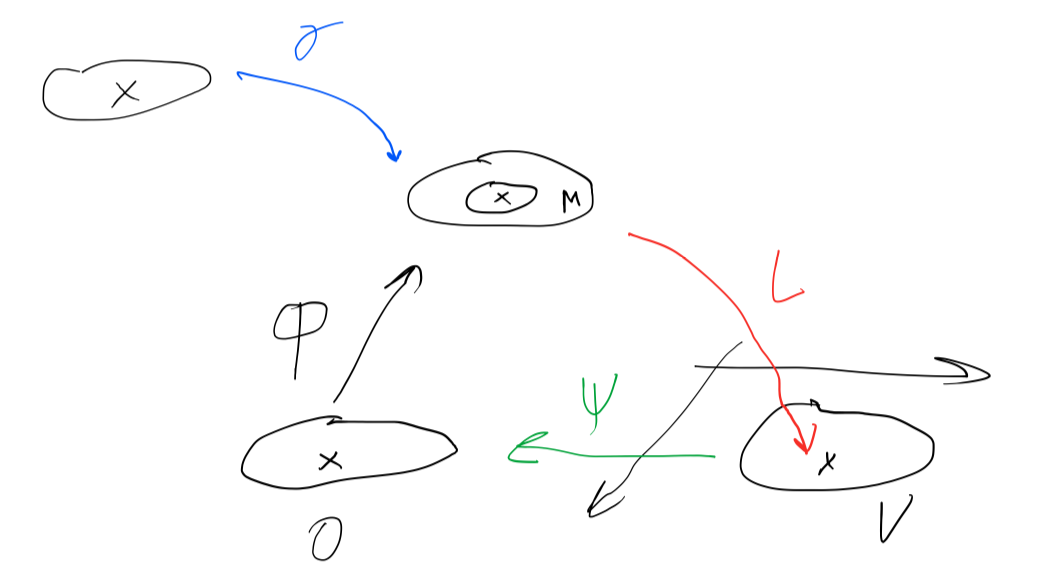 X
X M
L
φ
ψ
X
X
O
V